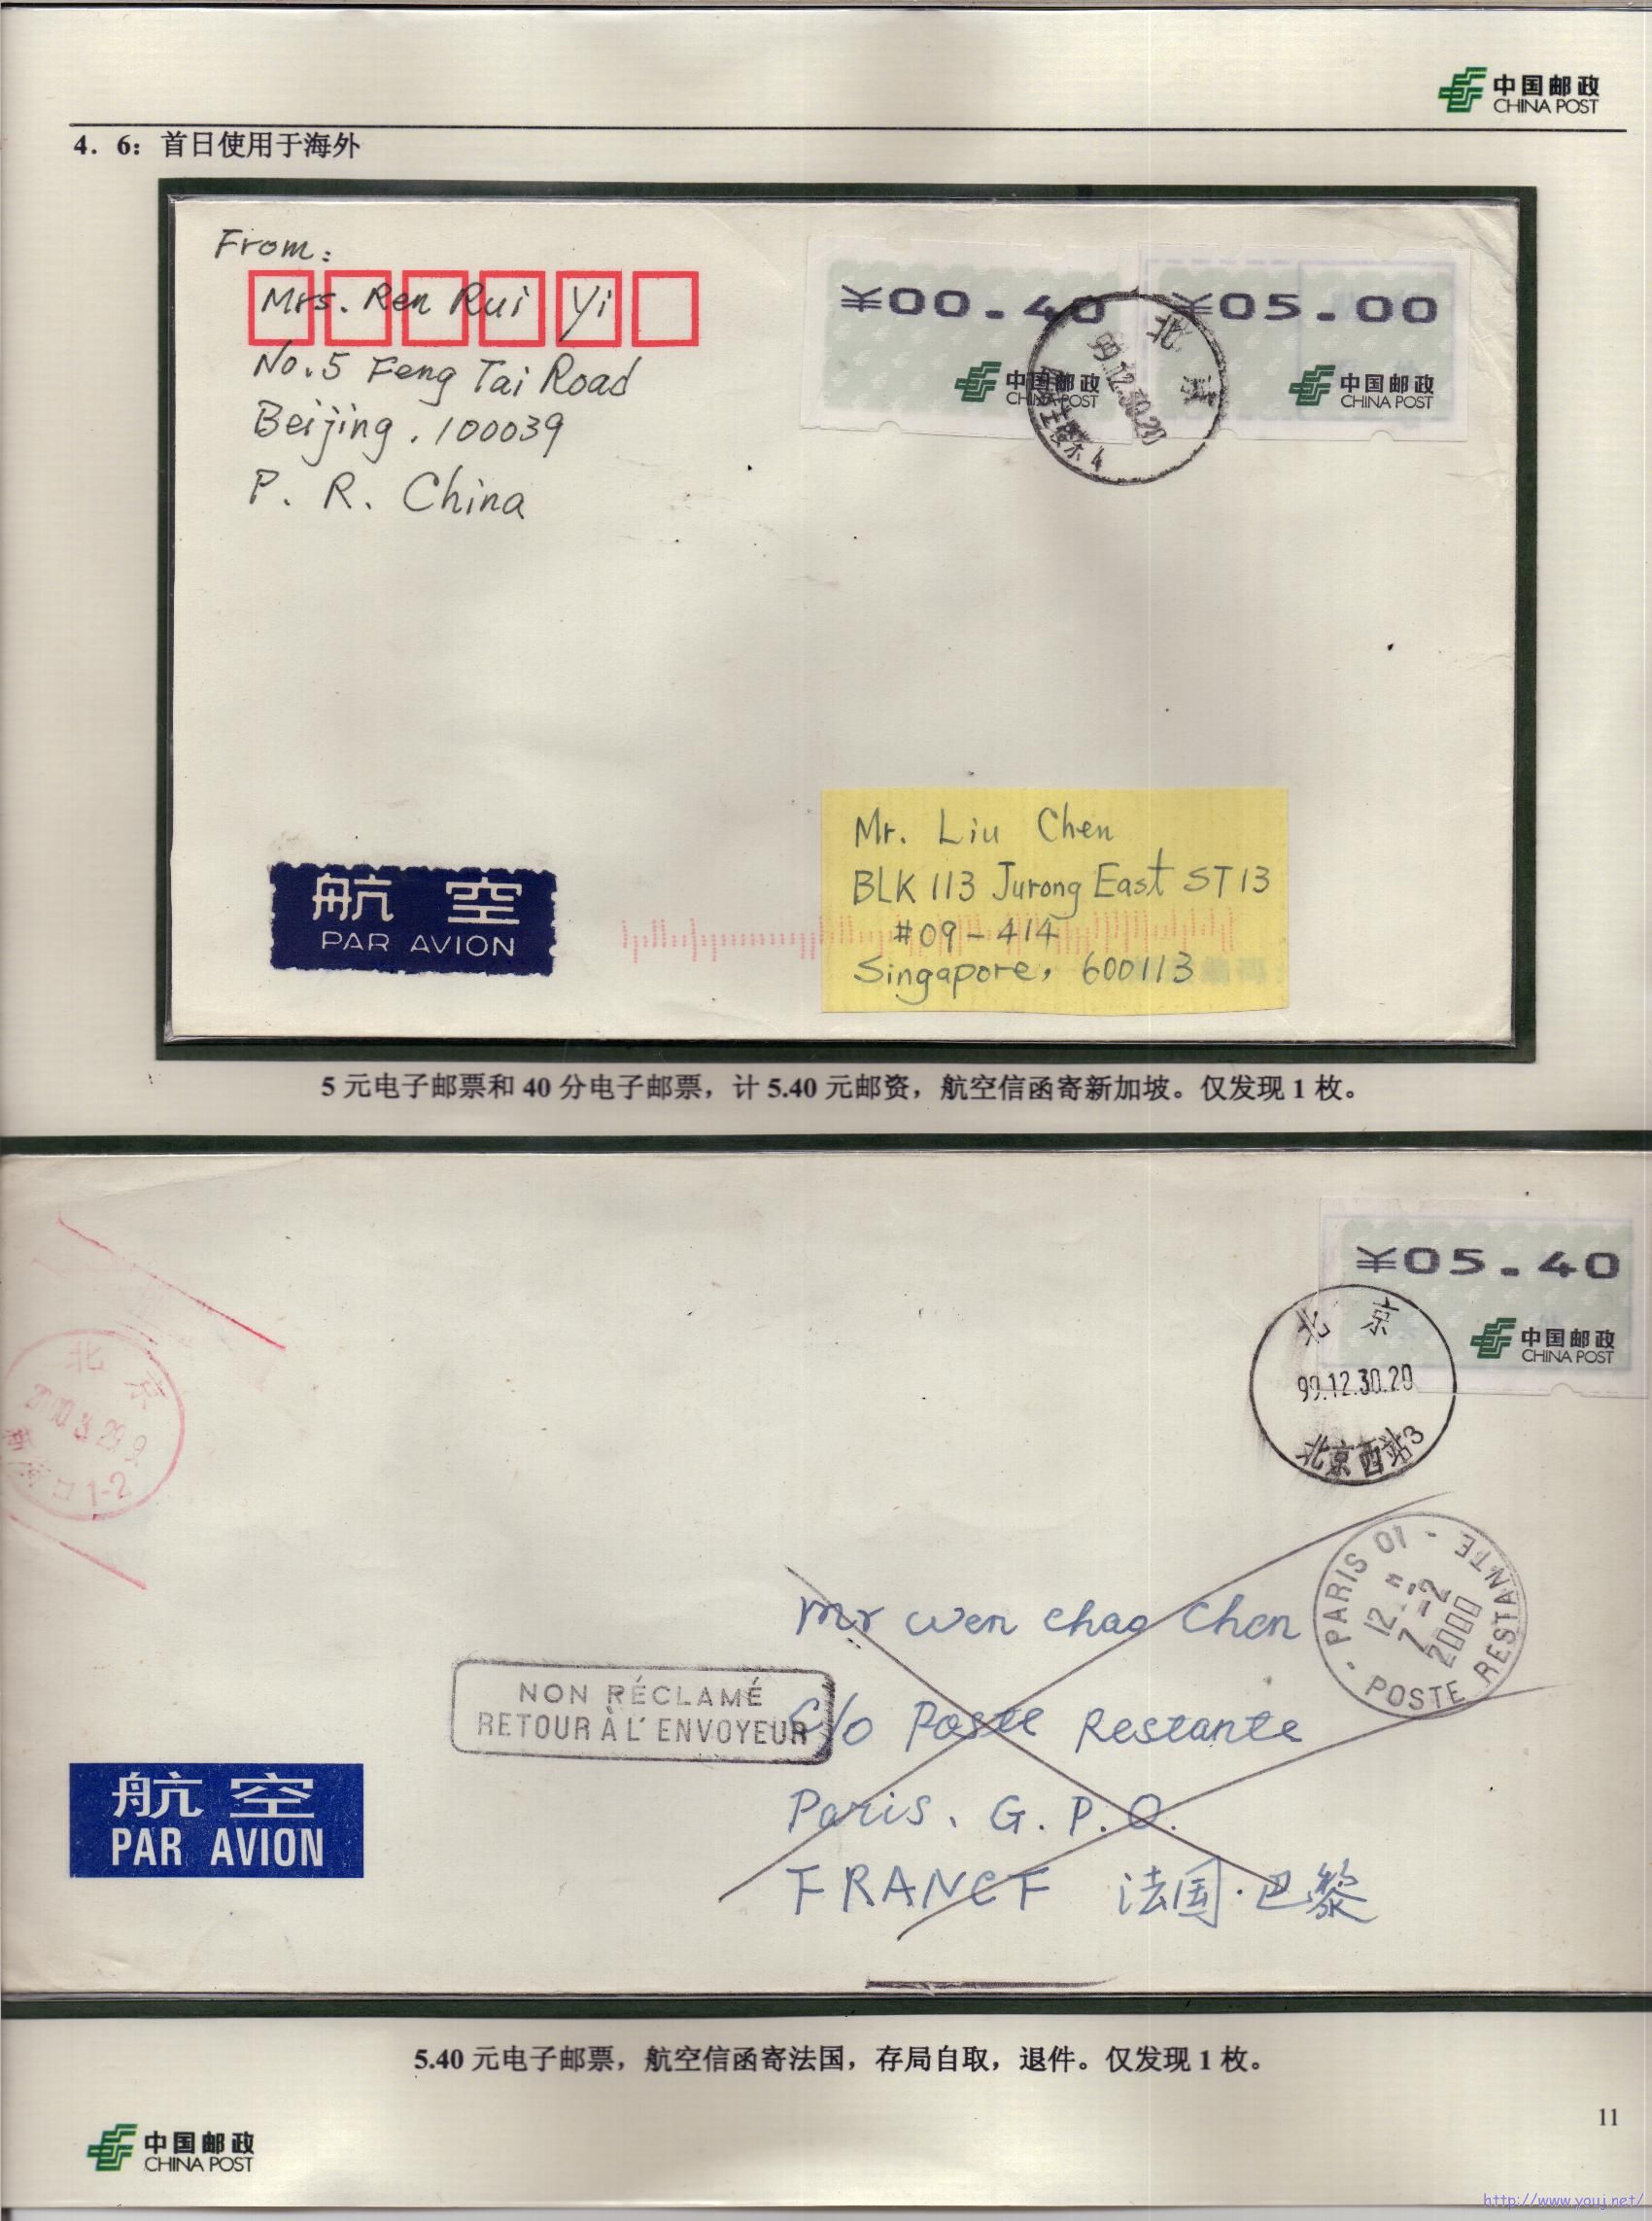 中国邮政
CHINA POST
4．6：首日使用于海外
From:
Mrs. Ren Rui Yi
No.5 Feng Tai Road
Beijing. 100039
P. R. China
¥00.40
中国邮政
CHINA POST
¥05.00
中国邮政
CHINA POST
北京
99.12.30.20
航空
PAR AVION
Mr. Liu Chen
BLK 113 Jurong East ST 13
#09-414
Singapore, 600113
5 元电子邮票和 40 分电子邮票，计 5.40 元邮资，航空信函寄新加坡。仅发现 1 枚。
¥05.40
中国邮政
CHINA POST
北京
99.12.30.20
北京西站3
北京
1-2
PARIS 01 - POSTE RESTANTE
7-2
2000
Mr wen chao Chen
NON RÉCLAMÉ
RETOUR À L'ENVOYEUR
C/o Poste Restante
Paris. G. P. O.
FRANCE 法国·巴黎
航空
PAR AVION
5.40 元电子邮票，航空信函寄法国，存局自取，退件。仅发现 1 枚。
11
中国邮政
CHINA POST
http://www.youj.net/